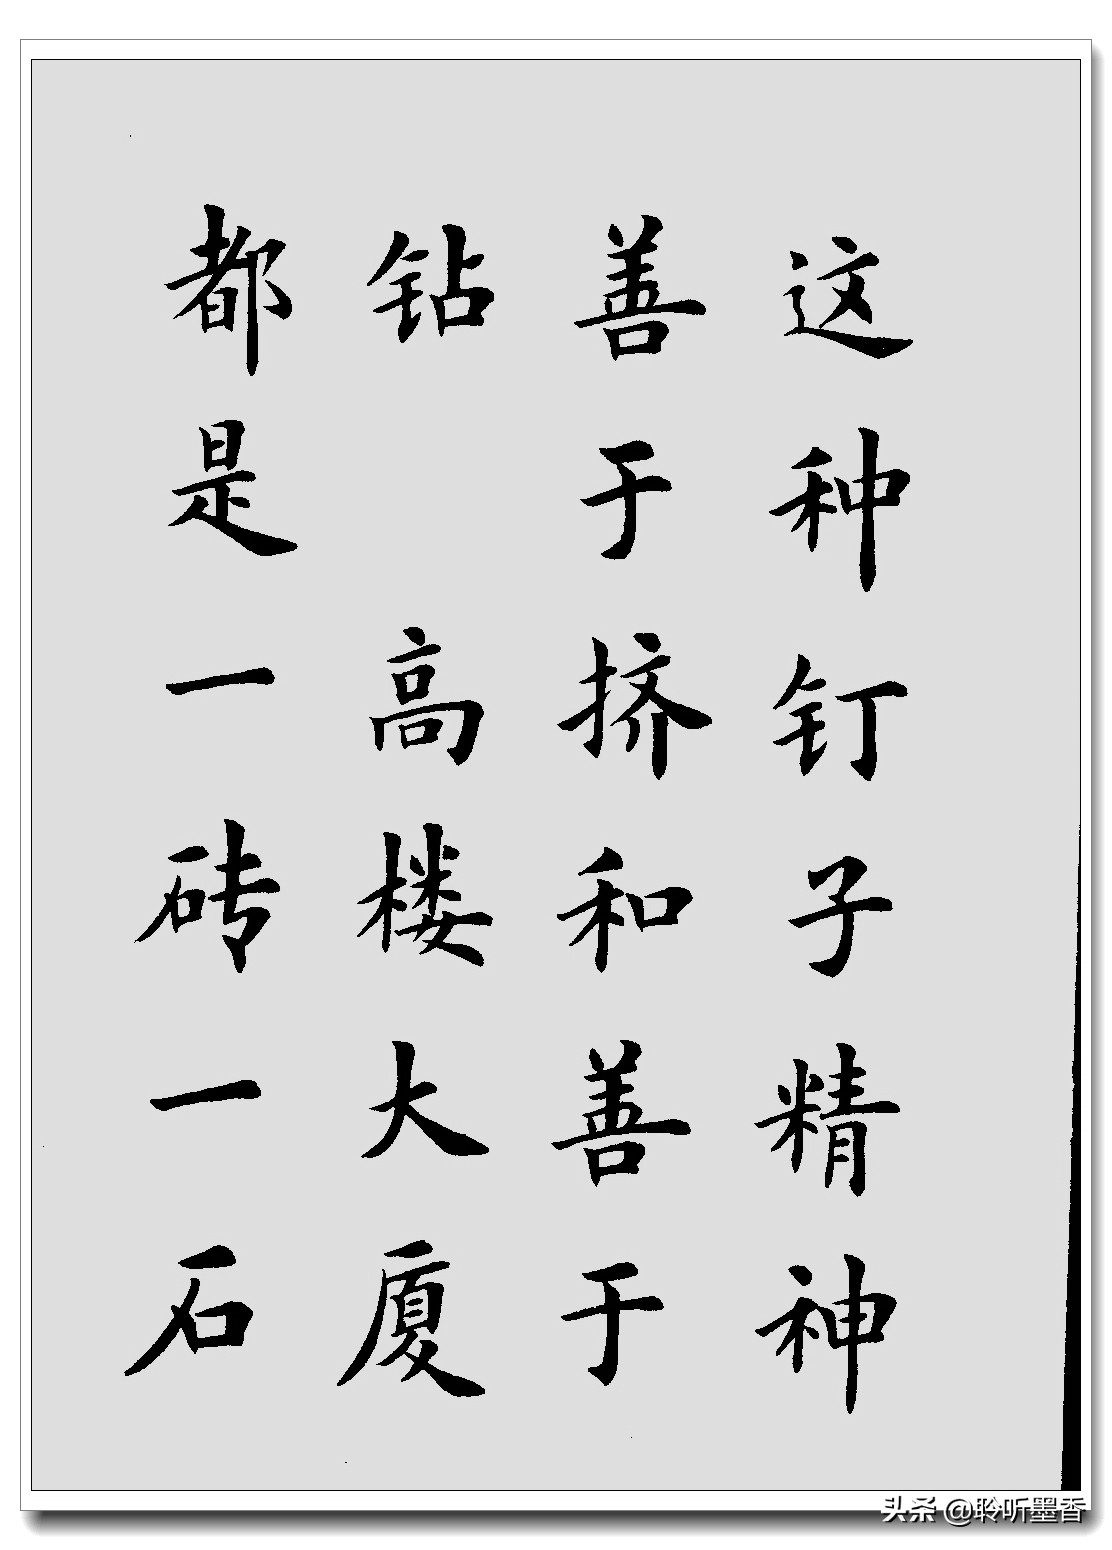 这种钉子精神
善于挤和善于
钻 高楼大厦
都是一砖一石
头条 @聆听墨香